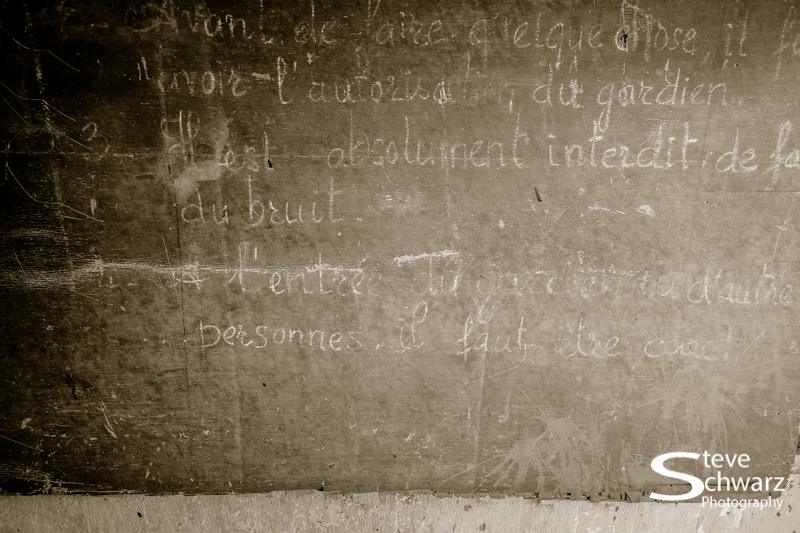 Avant de faire quelque chose, il f
avoir l'autorisation du gardien.
3. Il est absolument interdit de fa
du bruit.
A l'entrée du gardien ou d'autre
personnes, il faut être
Steve
Schwarz
Photography